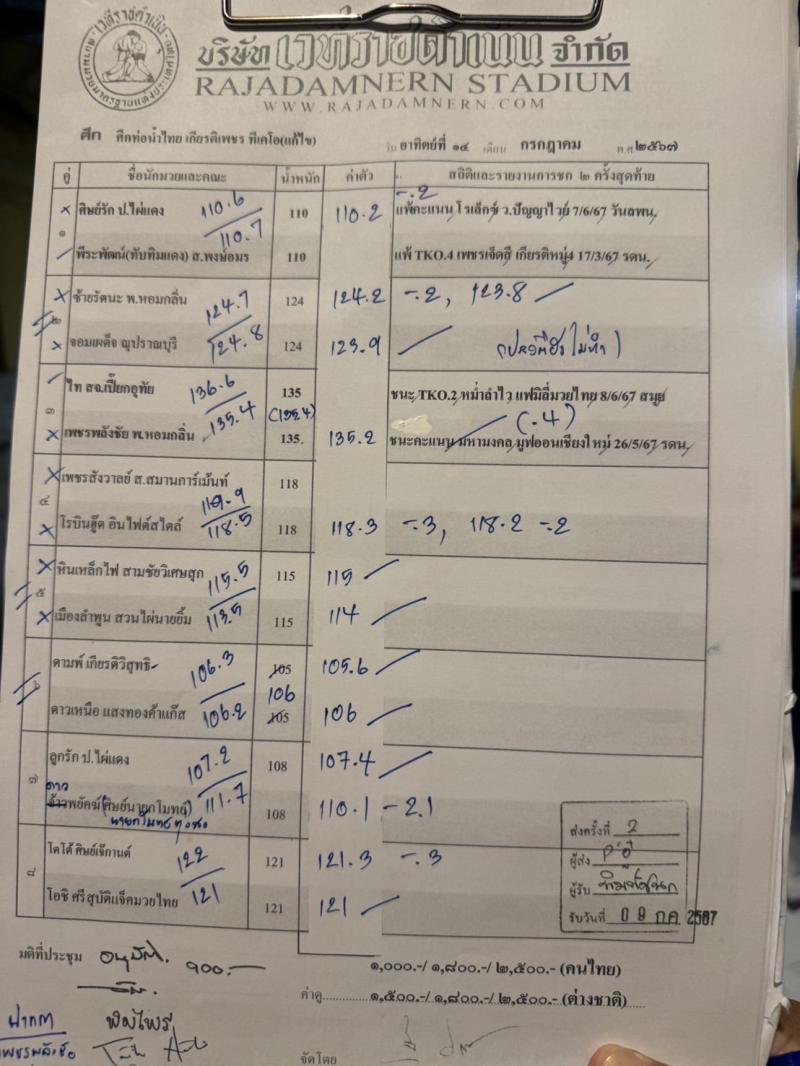 บริษัท เวทีราชดำเนิน จำกัด
RAJADAMNERN STADIUM
WWW.RAJADAMNERN.COM
ศึก ศึกท่อน้ำไทย เกียรติเพชร ทีเคโอ(แก้ไข) วัน อาทิตย์ที่ ๑๔ เดือน กรกฎาคม พ.ศ ๒๕๖๗
คู่ ชื่อนักมวยและคณะ น้ำหนัก ค่าตัว สถิติและรายงานการชก ๒ ครั้งสุดท้าย
๑ ศิษย์รัก ป.ไผ่แดง 110.6 110 110.2 -.2 แพ้คะแนน โรเล็กซ์ ว.ปัญญาไวย์ 7/6/67 วันลพน.
พีระพัฒน์(ทับทิมแดง) ส.พงษ์อมร 110.7 110 แพ้ TKO.4 เพชรเจ็ดสี เกียรติหมู่4 17/3/67 รดน.
๒ ซ้ายรัตนะ พ.หอมกลิ่น 124.7 124 124.2 -.2, 123.8
จอมเผด็จ ณุปราณบุรี 124.8 124 123.9
๓ ไท สจ.เปี๊ยกอุทัย 136.6 135 ชนะ TKO.2 หม่ำลำไว แฟมิลี่มวยไทย 8/6/67 สมุย
(135.4) (.4)
เพชรพลังชัย พ.หอมกลิ่น 135.4 135. 135.2 ชนะคะแนน มหามงคล มูฟออนเชียงใหม่ 26/5/67 รดน.
๔ เพชรสังวาลย์ ส.สมานการ์เม้นท์ 119.9 118
โรบินฮู๊ด อินไฟต์สไตล์ 118.5 118 118.3 -.3, 118.2 -.2
๕ หินเหล็กไฟ สามชัยวิเศษสุก 115.5 115 115
เมืองลำพูน สวนไผ่นายยิ้ม 113.5 115 114
๖ ดามพ์ เกียรติวิสุทธิ 106.3 105 105.6
106
ดาวเหนือ แสงทองค้าแก๊ส 106.2 105 106
๗ ลูกรัก ป.ไผ่แดง 107.2 108 107.4
ดาว
พยัคฆ์(ศิษย์นายกโมทย์) 111.7 108 110.1 -2.1
๘ โตโต้ ศิษย์เจ๊กานต์ 122 121 121.3 -.3
โอชิ ศรีสุบัติแจ็คมวยไทย 121 121 121
ส่งครั้งที่ 2
ผู้ส่ง
ผู้รับ
รับวันที่ 09 ก.ค. 2567
มติที่ประชุม อนุมัติ ๑๐๐.-
๑,๐๐๐.-/ ๑,๘๐๐.-/ ๒,๕๐๐.- (คนไทย)
ค่าดู ๑,๕๐๐.-/ ๑,๘๐๐.-/ ๒,๕๐๐.- (ต่างชาติ)
จัดโดย